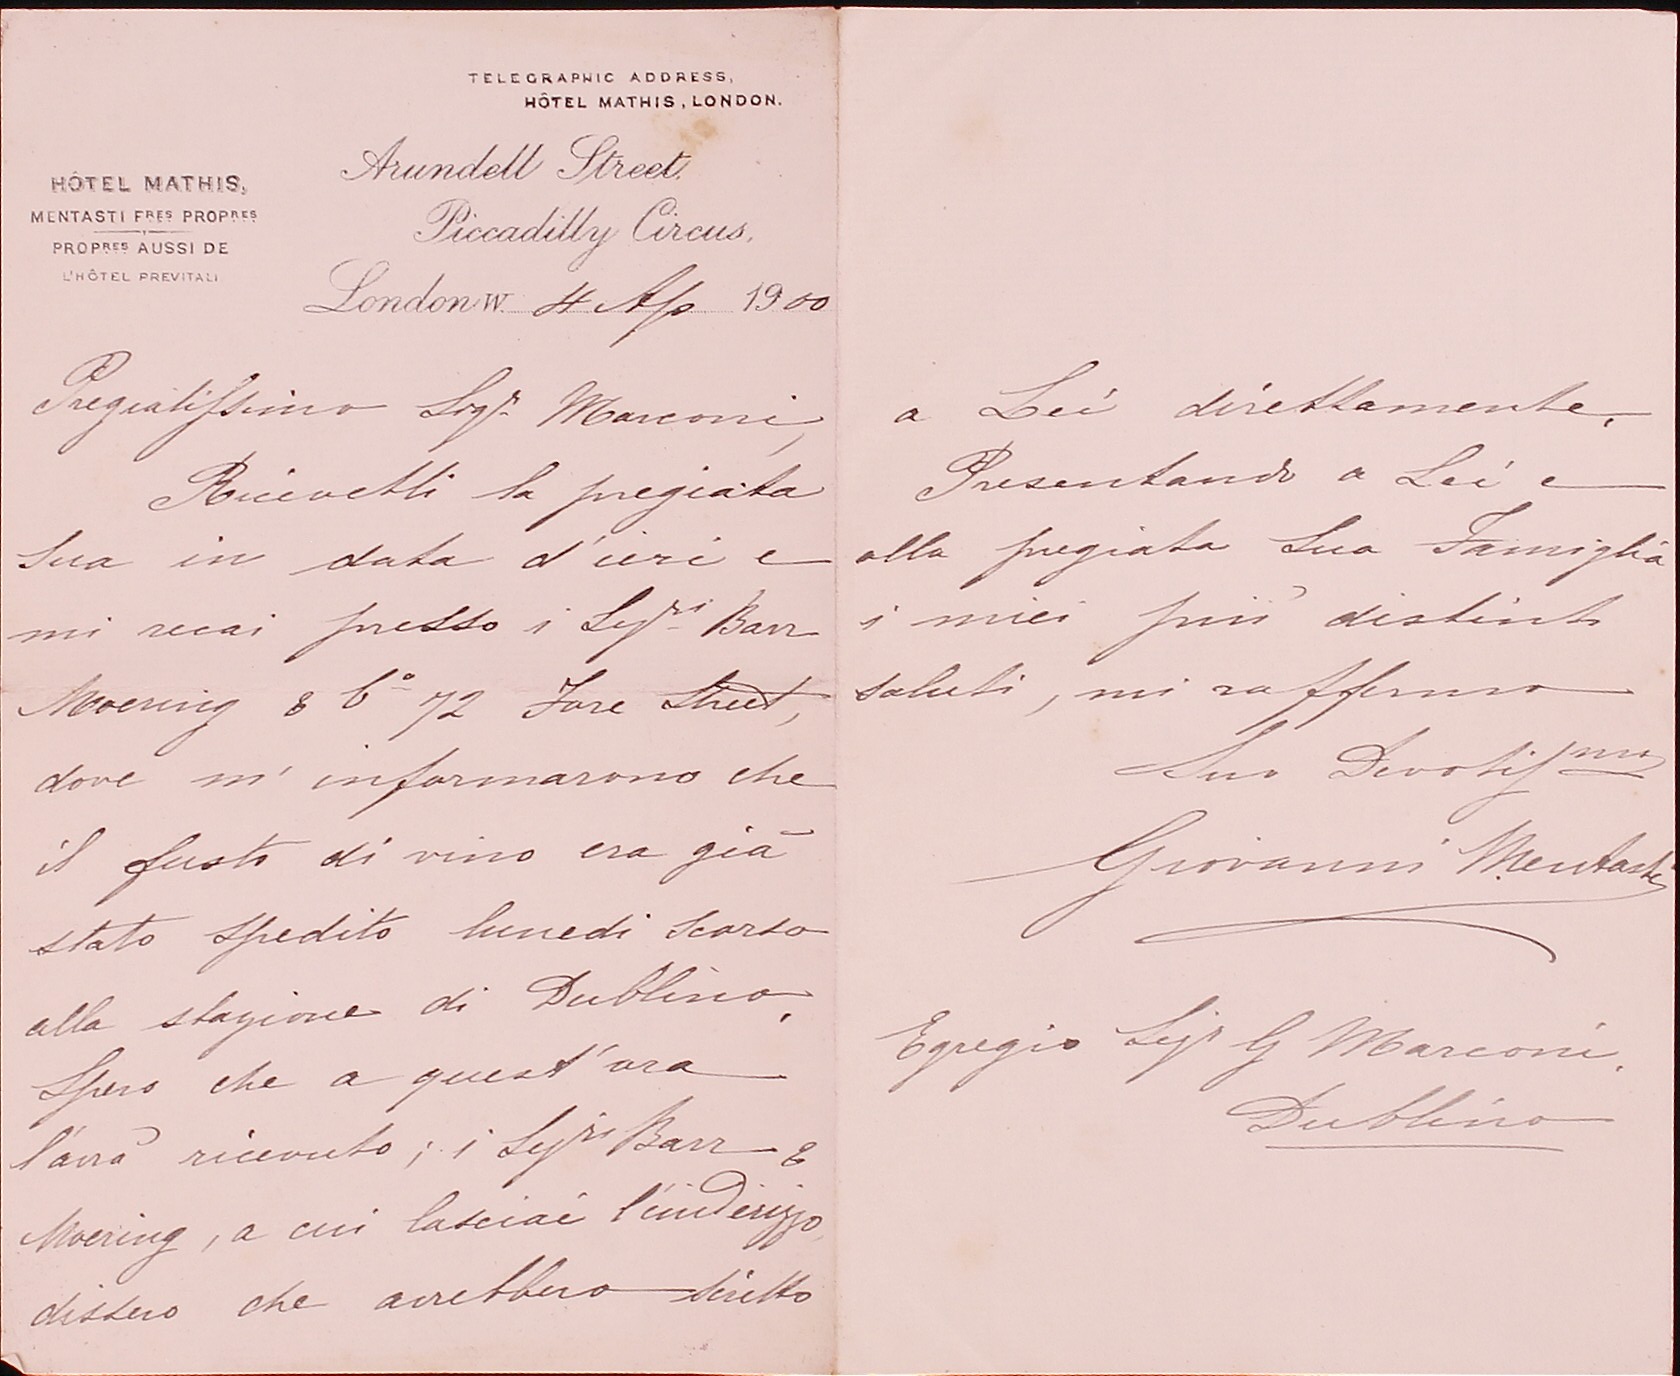 TELEGRAPHIC ADDRESS,
HÔTEL MATHIS, LONDON.
HÔTEL MATHIS,
MENTASTI FRES PROPRES
PROPRES AUSSI DE
L'HÔTEL PREVITALI
Arundell Street,
Piccadilly Circus,
London W. 4 Ap 1900
Pregiatissimo Sigr. Marconi,
Ricevetti la pregiata
Sua in data d'ieri e
mi recai presso i Sigri Barr
Moering & Co 72 Fore Street,
dove m'informarono che
il fusto di vino era già
stato spedito lunedi scorso
alla stazione di Dublino.
Spero che a quest'ora
l'avrà ricevuto; i Sigri Barr &
Moering, a cui lasciai l'inderizzo,
dissero che avrebbero scritto
a Lei direttamente.
Presentando a Lei e
alla pregiata Sua Famiglia
i miei più distinti
saluti, mi raffermo
Suo Devotissmo
Giovanni Mentasti
Egregio Sigr G Marconi.
Dublino